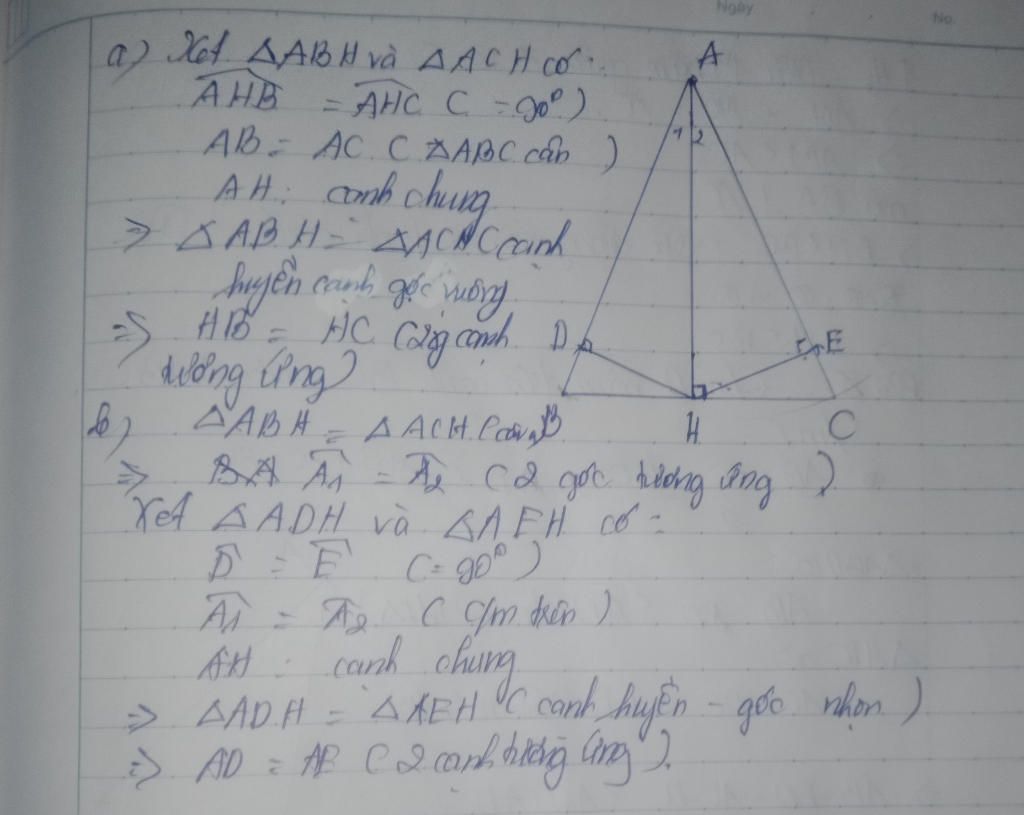 Ngày
No.
a) Xét △ABH và △ACH có:
AHB = AHC ( = 90°)
AB = AC ( △ABC cân )
AH : cạnh chung
=> △ABH = △ACH ( cạnh
huyền cạnh góc vuông
=> HB = HC ( 2 cạnh
tương ứng)
A
1 2
D
E
B
H
C
b) △ABH = △ACH (câu a)
=> A1 = A2 ( 2 góc tương ứng )
Xét △ADH và △AEH có :
D = E ( = 90° )
A1 = A2 ( c/m trên )
AH : cạnh chung
=> △ADH = △AEH ( cạnh huyền - góc nhọn )
=> AD = AE ( 2 cạnh tương ứng ).